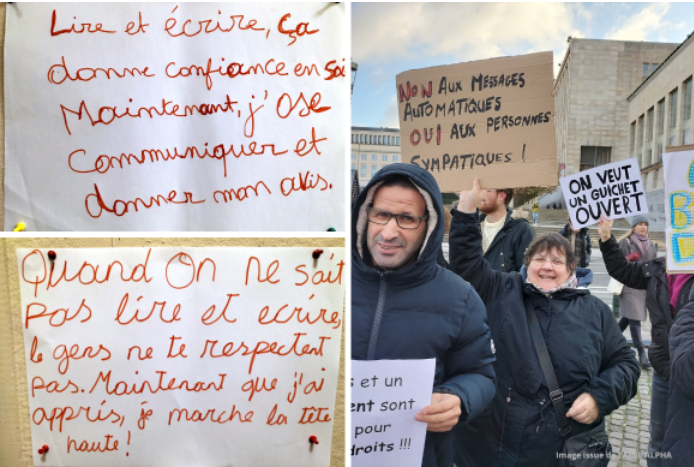 Lire et écrire, ça
donne confiance en soi
Maintenant, j'ose
communiquer et
donner mon avis.
Quand On ne sait
pas lire et ecrire,
le gens ne te respectent
pas. Maintenant que j'ai
appris, je marche la tête
haute!
NON AUX MESSAGES
AUTOMATIQUES
OUI AUX PERSONNES
SYMPATIQUES !
ON VEUT
UN GUICHET
OUVERT
s et un
ent sont
pour
droits !!!
Image issue de
ALPHA